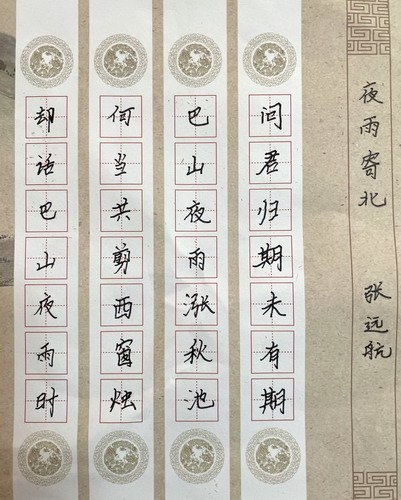 夜雨寄北
张远航
问君归期未有期
巴山夜雨涨秋池
何当共剪西窗烛
却话巴山夜雨时